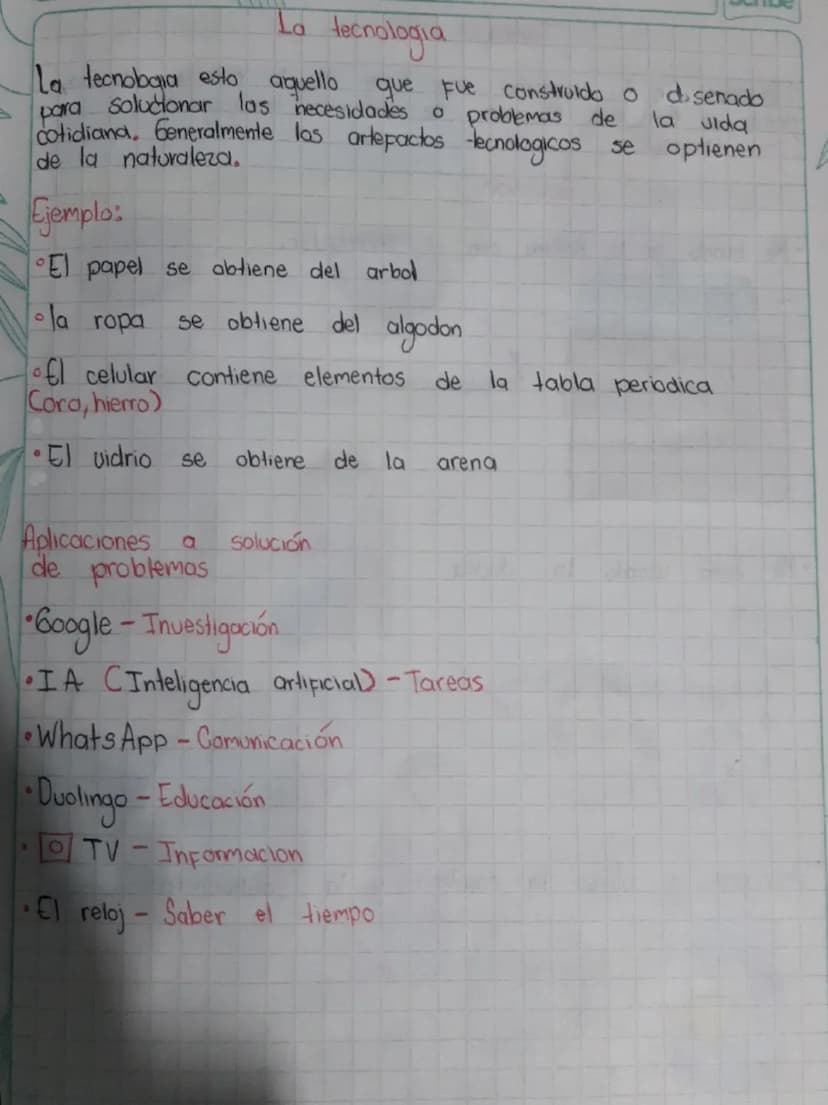 La tecnologia
La tecnologia esto aquello que fue construido o disenado
para soluctionar las necesidades o problemas de la vida
cotidiana. Generalmente los artepactos tecnologicos se optienen
de la naturaleza.
Ejemplo:
•El papel se obtiene del arbol
•la ropa se obtiene del algodon
•El celular contiene elementos de la tabla periodica
(oro, hierro)
•El vidrio se obtiene de la arena
Aplicaciones a solución
de problemas
•Google - Investigación
•IA (Inteligencia artificial) - Tareas
•WhatsApp - Comunicación
•Duolingo - Educación
•TV - Informacion
•El reloj - Saber el tiempo